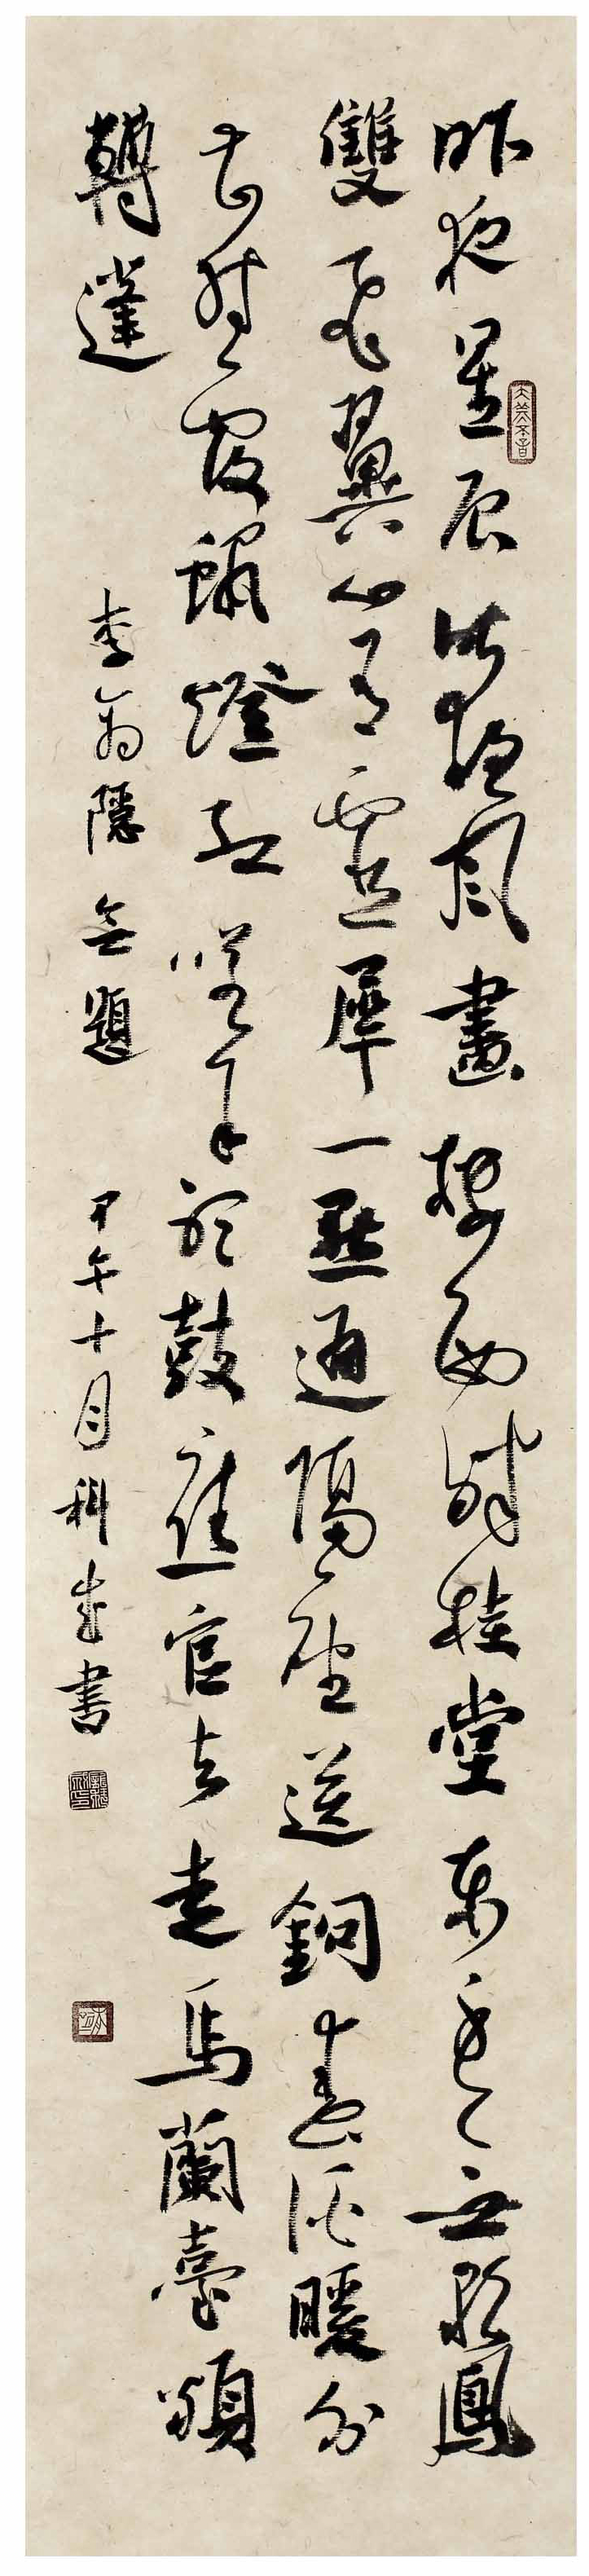 昨夜星辰昨夜風畫樓西畔桂堂東身無彩鳳
雙飛翼心有靈犀一點通隔座送鉤春酒暖分
曹射覆蠟燈紅嗟余聽鼓應官去走馬蘭臺類
轉蓬 李商隱無題 甲午十月科成書
大美不言